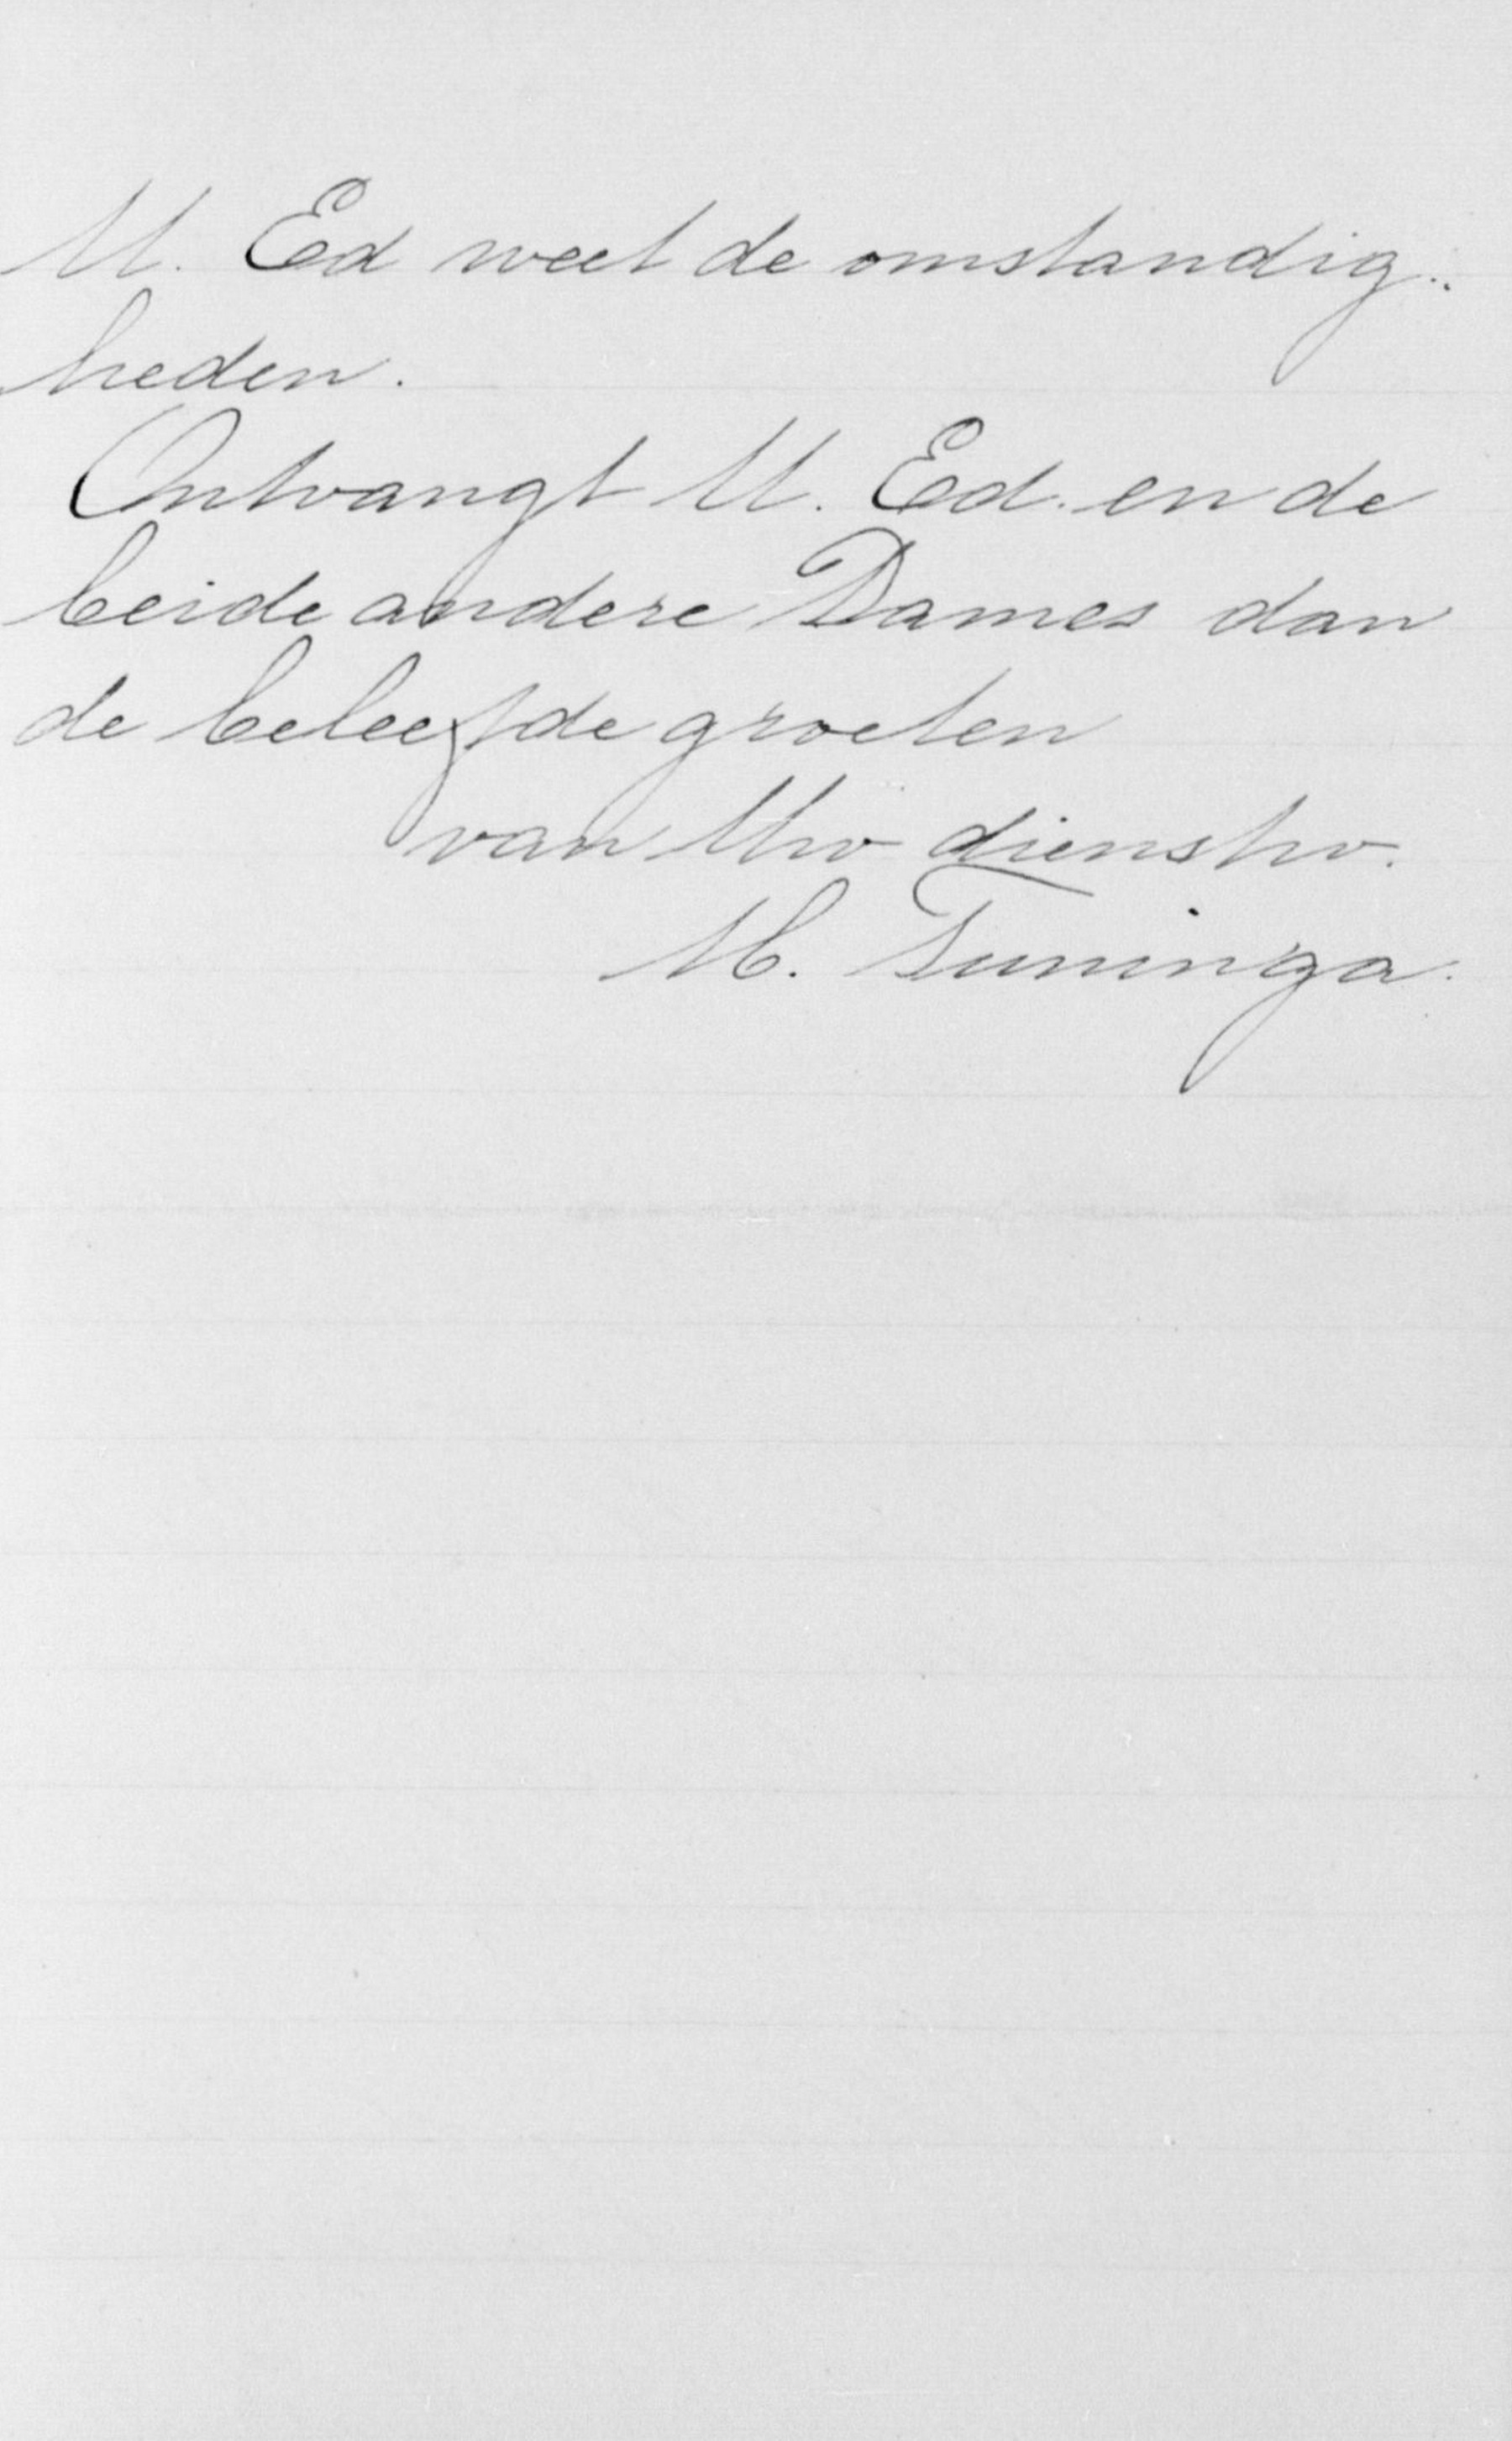 U. Ed weet de omstandig..
heden.
Ontvangt U. Ed. en de
beide andere Dames dan
de beleefde groeten
van Uw dienstw.
H. Tuninga.